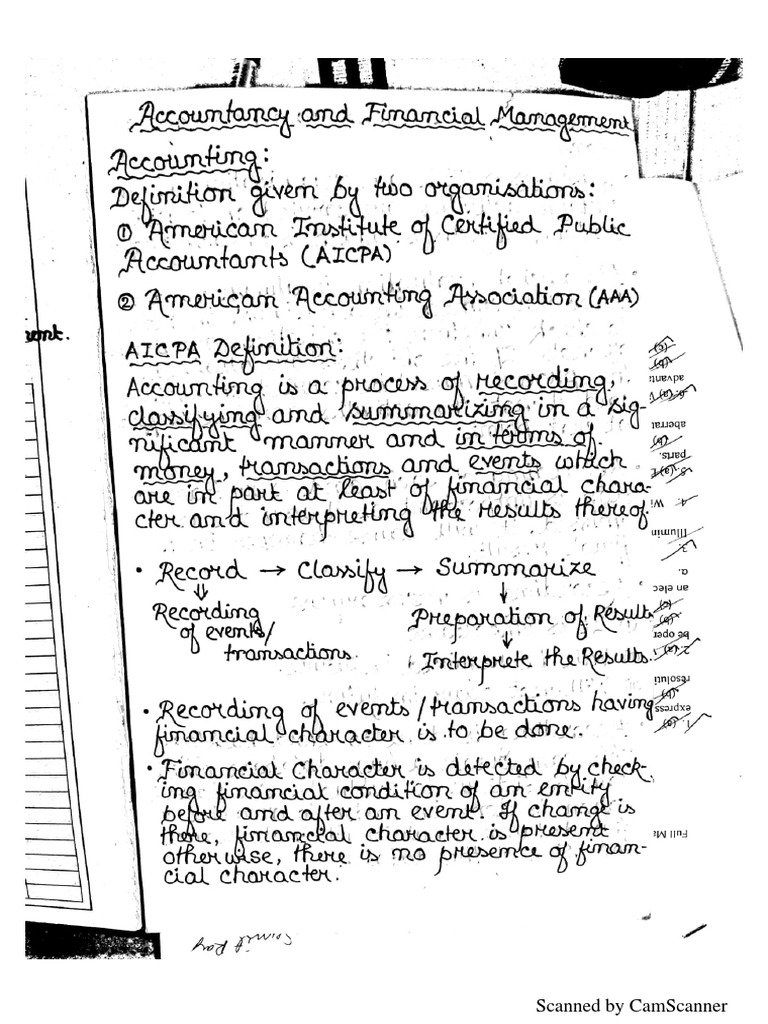 Accountancy and Financial Management
Accounting:
Definition given by two organisations:
① American Institute of Certified Public
Accountants (AICPA)
② American Accounting Association (AAA)
AICPA Definition:
Accounting is a process of recording,
classifying and summarizing in a sig-
nificant manner and in terms of
money, transactions and events which
are in part at least of financial chara-
cter and interpreting the results thereof.
• Record → Classify → Summarize
⇓ ↓
Recording Preparation of Result
of events/ ↓
transactions. Interprete the Results.
• Recording of events/transactions having
financial character is to be done.
• Financial Character is detected by check-
ing financial condition of an entity
before and after an event. If change is
there, financial character is present
otherwise, there is no presence of finan-
cial character.
1. (a)
express
(b)
resoluti
2. (a)
be oper
(b)
(c)
an elec
a.
3.
Illumin
4. Wi
5. (a)
parts.
(b)
aberrat
6. (a)
advanta
(b)
(c)
Full Ma
Sumit Ray
Scanned by CamScanner